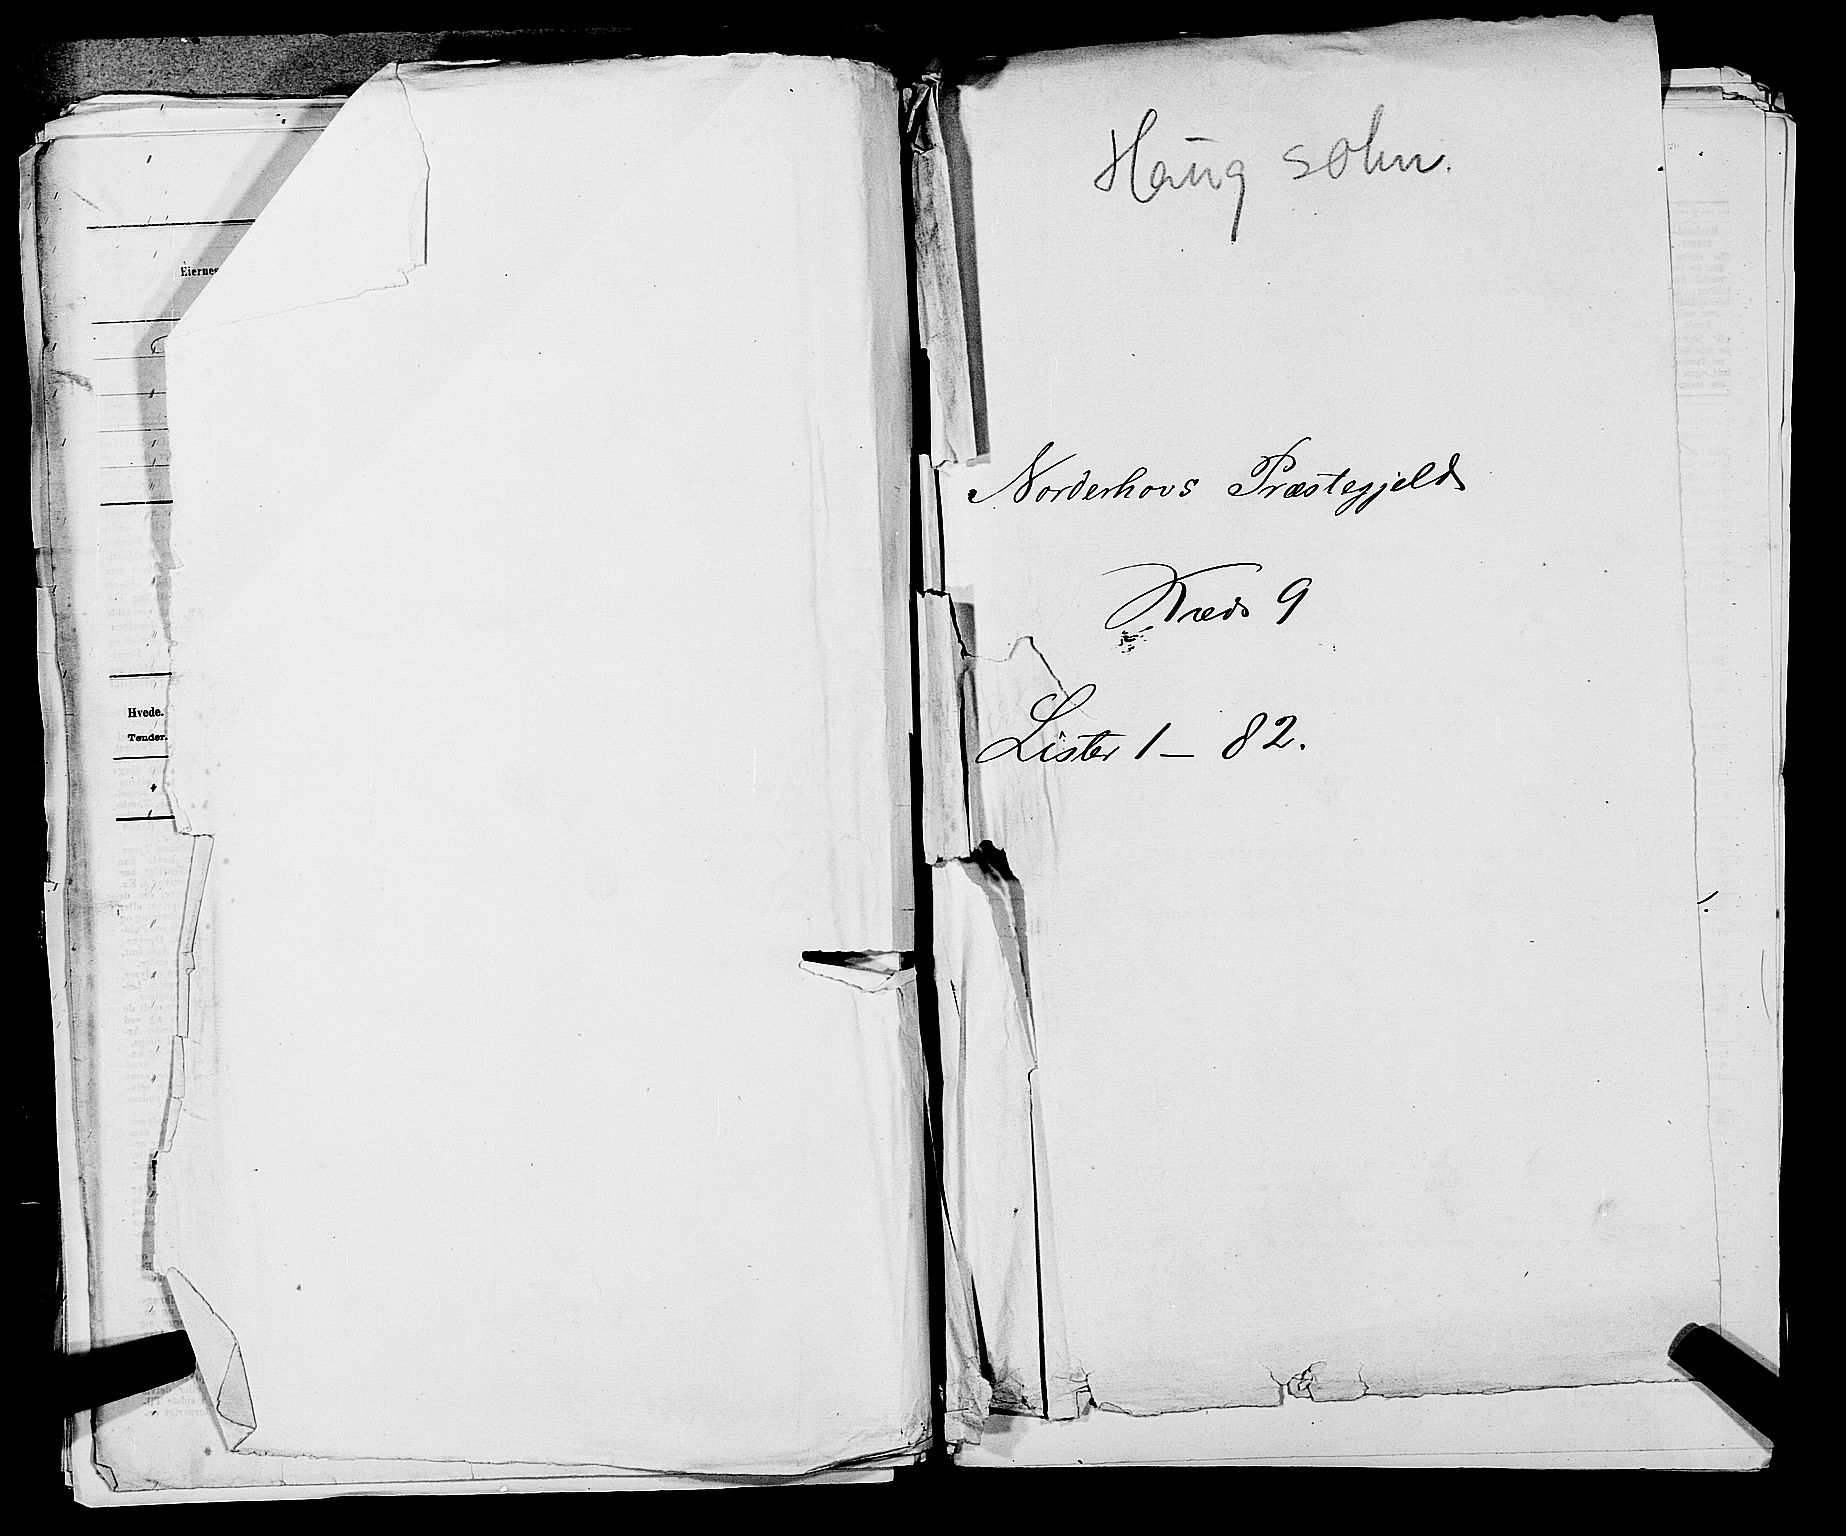 Eiernes
Hvede.
Tønder.
Haug sokn.
Norderhovs Præstegjeld
Kreds 9
Lister 1 – 82.